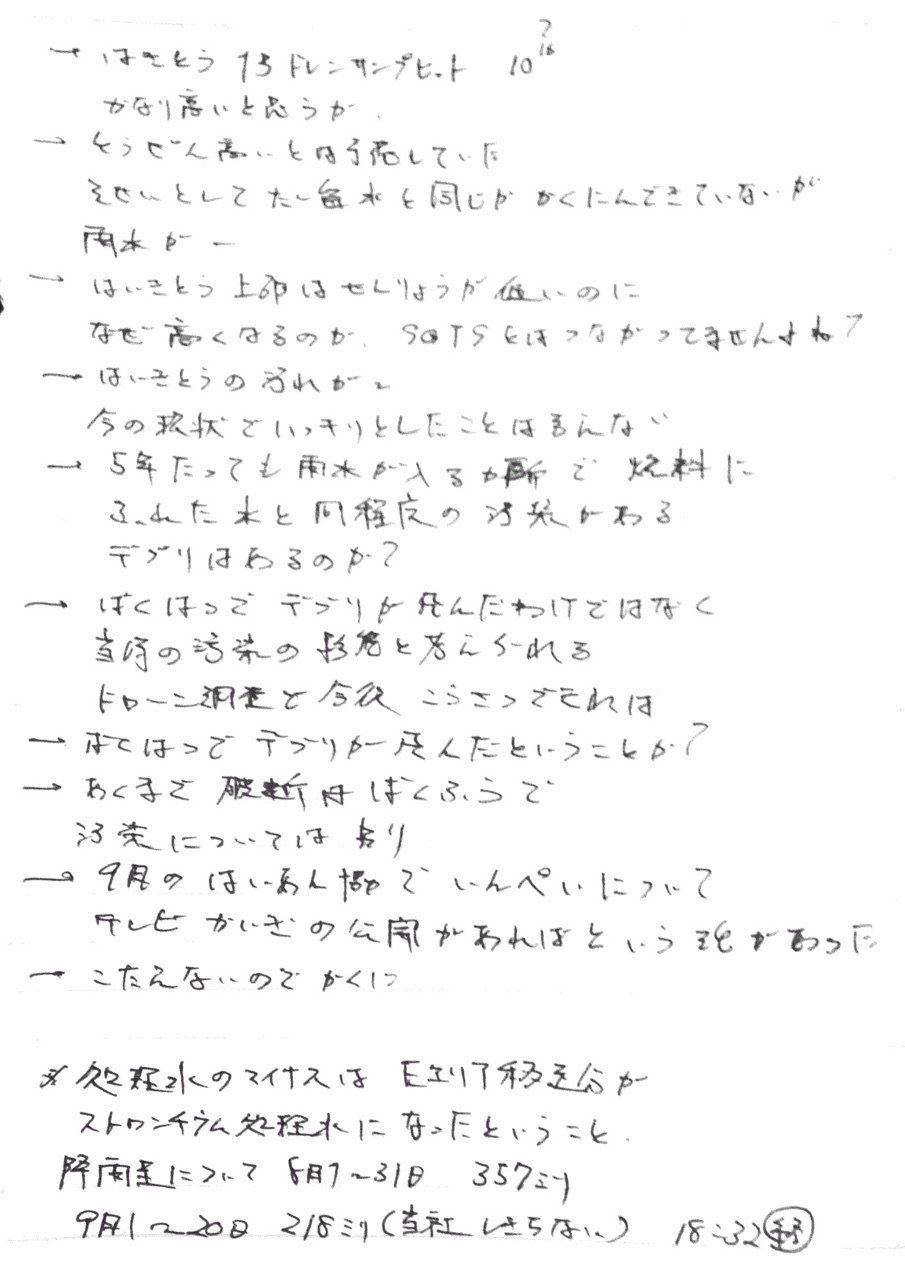 → はきとう 15ドレンサンプピット 10
かなり高いと思うが、
→ とうぜん高いとは予想していた
そせいとしてたい留水と同じか かくにんできていないが
雨水が ー
→ はいきとう上部はせんりょうが低いのに
なぜ高くなるのか、SGTSとはつながってませんよね?
→ はいきとうの汚れが〜
今の現状でハッキリとしたことは言えない
→ 5年たっても雨水が入るか所で 燃料に
ふれた水と同程度の汚染がある
デブリはあるのか?
→ ばくはつで デブリが飛んだわけではなく
当時の汚染の影響と考えられる
ドローン調査と今後 こうさつでそれは
→ ばくはつで デブリが飛んだということか?
→ あくまで 破断はばくふうで
汚染については
→ 9月の はいあん協で いんぺいについて
テレビ かいぎの公開があればという
→ こたえないので かくにつ
※処理水のマイナスは Eエリア移送分が
ストロンチウム処理水になったということ.
降雨量について 8月1〜31日 357ミリ
9月1〜20日 218ミリ(当社 しきちない) 18:32終